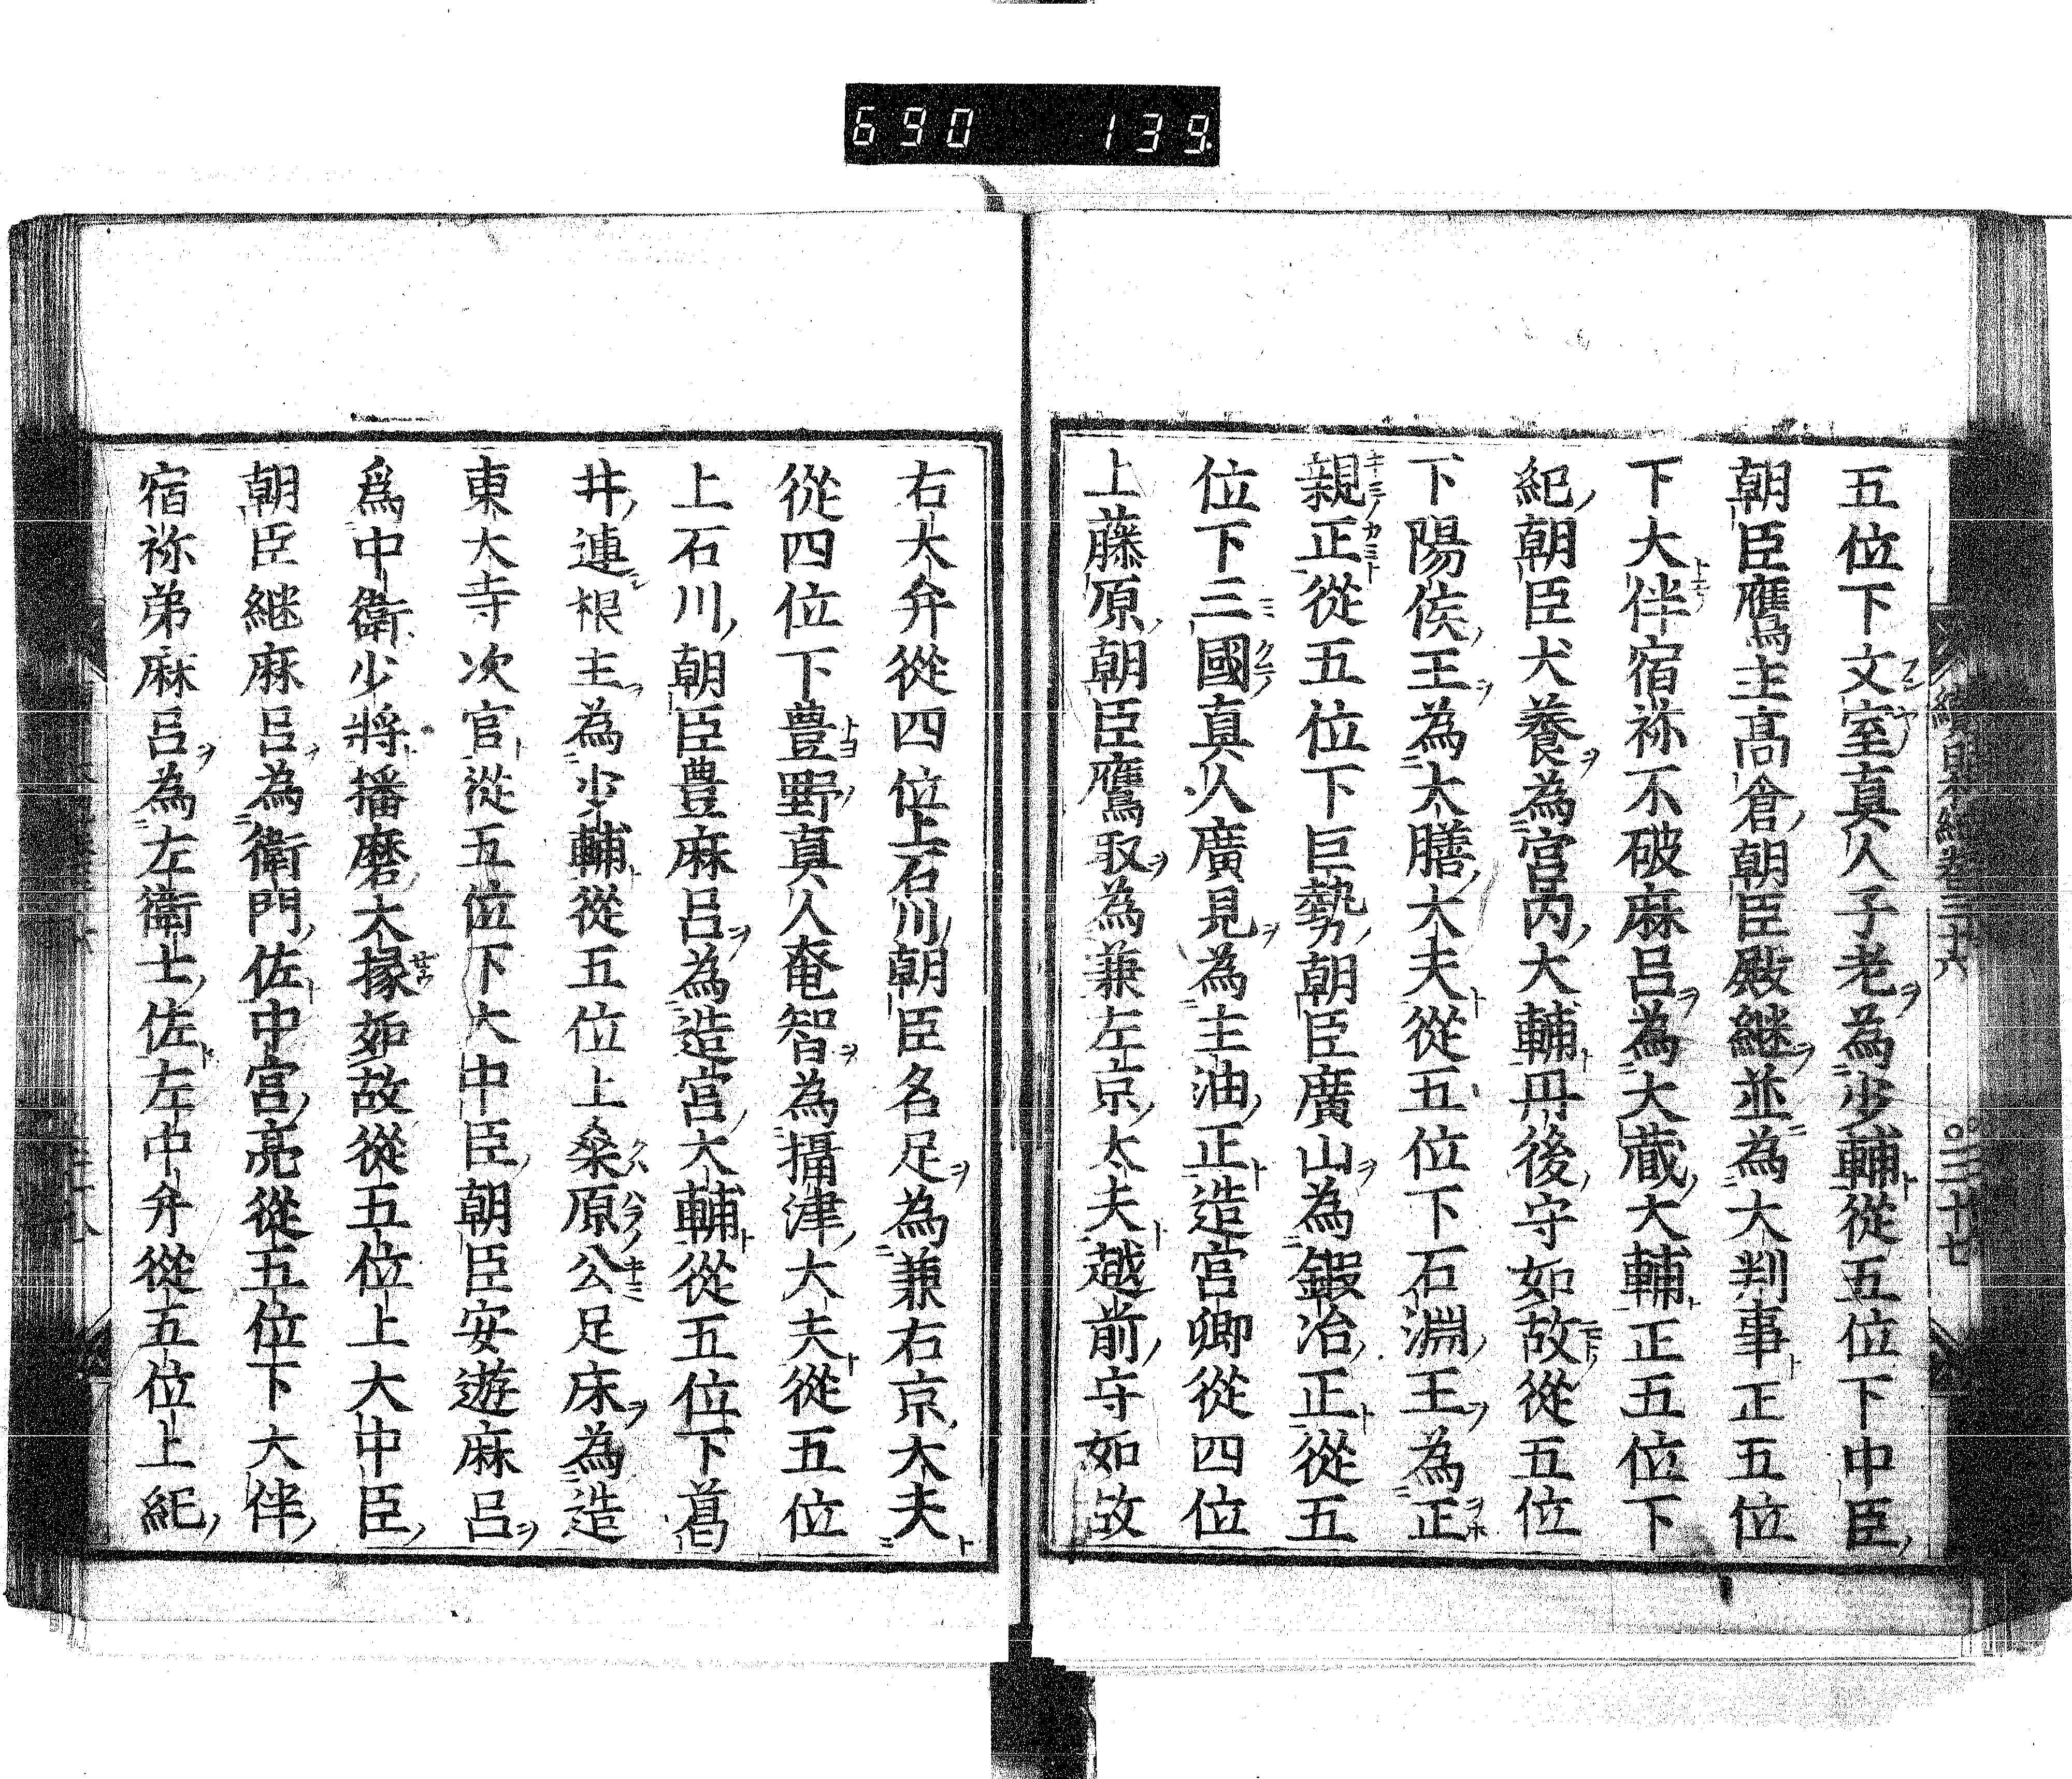 690 139
續日本紀卷三十六 〇三十七
五位下文室真人子老為少輔從五位下中臣
朝臣鷹主高倉朝臣殿継並為大判事正五位
下大伴宿祢不破麻呂為大蔵大輔正五位下
紀朝臣犬養為宮内大輔丹後守如故從五位
下陽侯王為大膳大夫從五位下石淵王為正
親正從五位下巨勢朝臣廣山為鍛冶正從五
位下三國真人廣見為主油正造宮卿從四位
上藤原朝臣鷹取為兼左京大夫越前守如故
右大弁從四位上石川朝臣名足為兼右京大夫
從四位下豊野真人奄智為攝津大夫從五位
上石川朝臣豊麻呂為造宮大輔從五位下葛
井連根主為少輔從五位上桑原公足床為造
東大寺次官從五位下大中臣朝臣安遊麻呂
為中衛少將播磨大掾如故從五位上大中臣
朝臣継麻呂為衛門佐中宮亮從五位下大伴
宿祢弟麻呂為左衛士佐左中弁從五位上紀